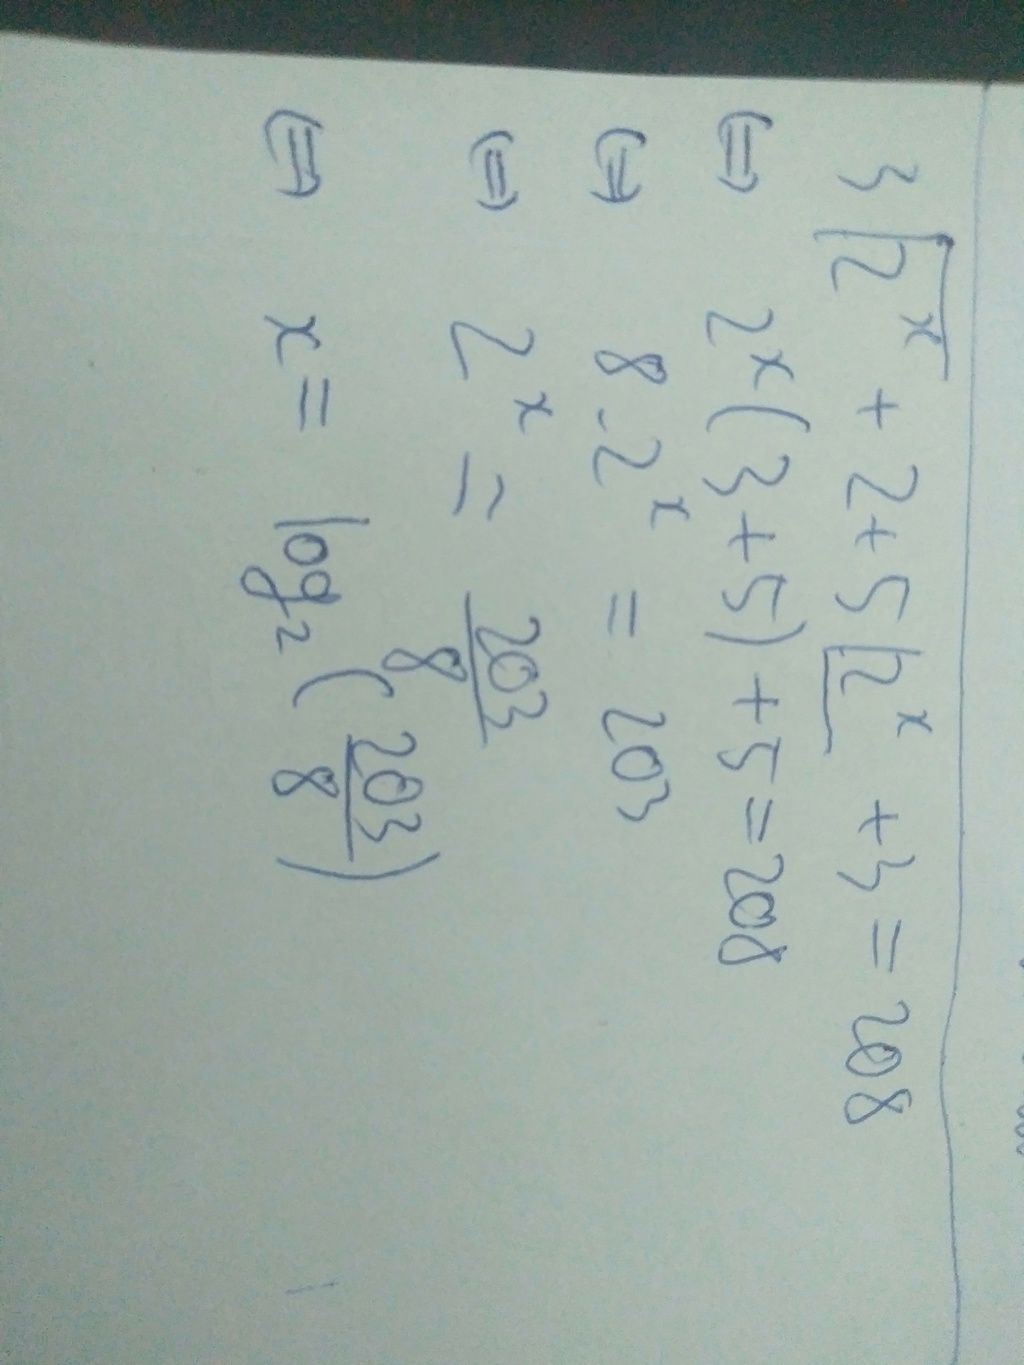 3⌈2ˣ + 2 + 5⌊2ˣ + 3 = 208
⇔ 2ˣ(3+5) + 5 = 208
⇔ 8·2ˣ = 203
⇔ 2ˣ = 203/8
⇔ x = log₂(203/8)